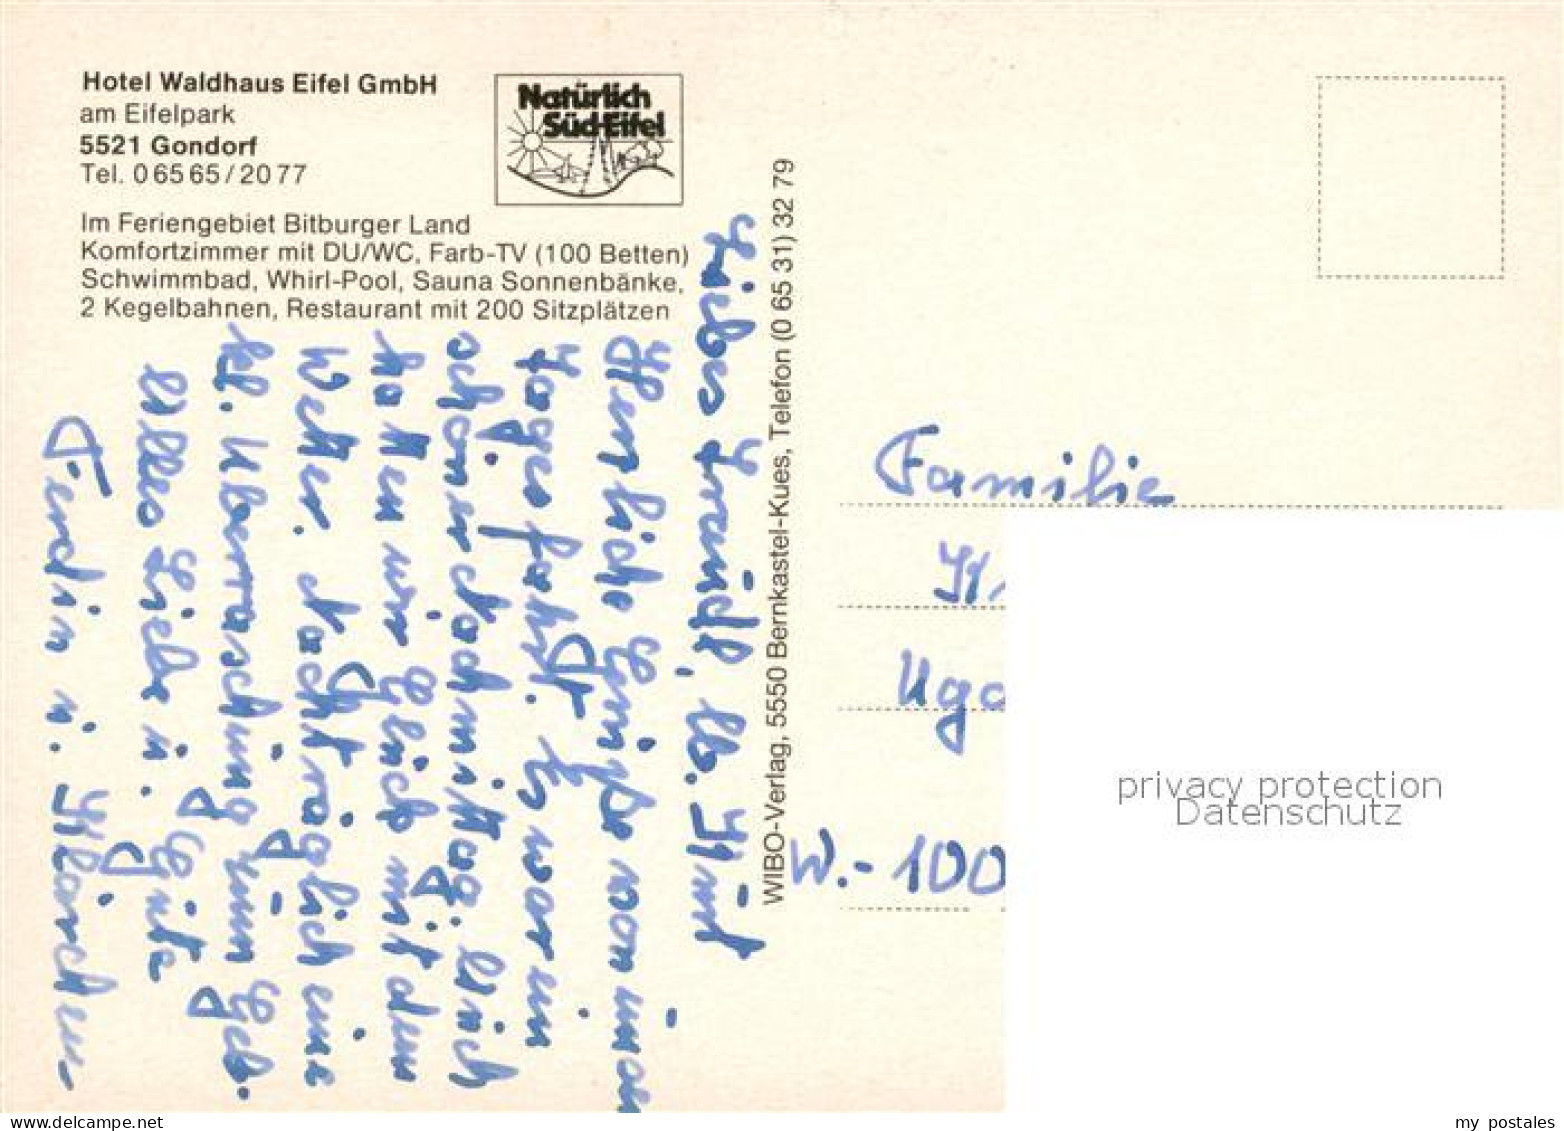 Hotel Waldhaus Eifel GmbH
am Eifelpark
5521 Gondorf
Tel. 0 65 65 / 20 77
Natürlich
Süd-Eifel
Im Feriengebiet Bitburger Land
Komfortzimmer mit DU/WC, Farb-TV (100 Betten)
Schwimmbad, Whirl-Pool, Sauna Sonnenbänke,
2 Kegelbahnen, Restaurant mit 200 Sitzplätzen
Liebes lb.
Herzliche Grüße von
Tagesfahrt. Es war ein
schöner Nachmittag. Auch
hatten wir Glück mit dem
Wetter. Nachträglich eine
kl. Überraschung zum Geb.
Alles Liebe u. Gute
WIBO-Verlag, 5550 Bernkastel-Kues, Telefon (0 65 31) 32 79
Familie
W.-100
privacy protection
Datenschutz
www.delcampe.net
my_postales